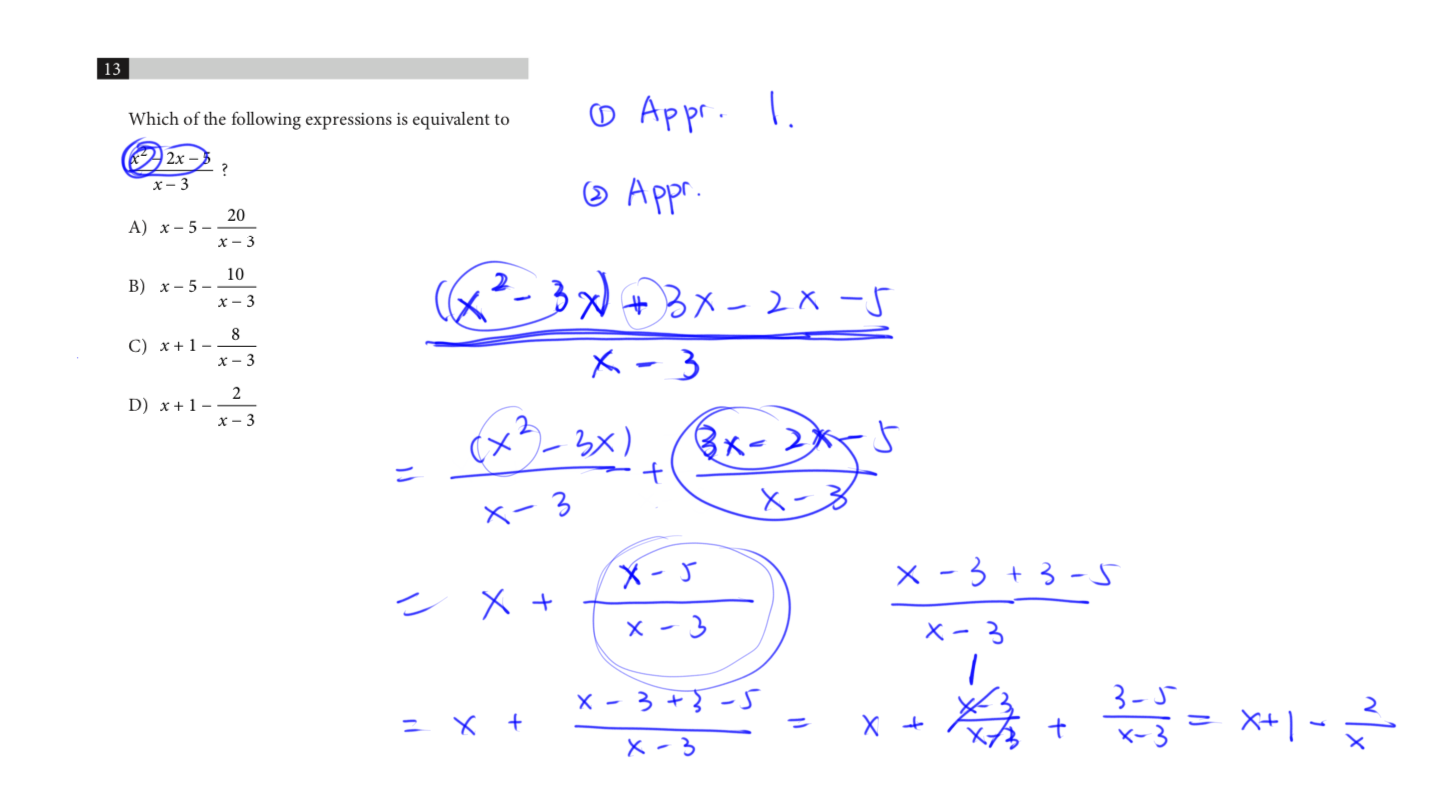 13
Which of the following expressions is equivalent to
x² – 2x – 5 / x – 3 ?
A) x – 5 – 20 / x – 3
B) x – 5 – 10 / x – 3
C) x + 1 – 8 / x – 3
D) x + 1 – 2 / x – 3
① Appr. 1.
② Appr.
((x² - 3x) + 3x - 2x - 5 / x - 3
= (x² - 3x) / x - 3 + 3x - 2x - 5 / x - 3
= x + x - 5 / x - 3
x - 3 + 3 - 5 / x - 3
= x + x - 3 + 3 - 5 / x - 3 = x + x - 3 / x - 3 1 + 3 - 5 / x - 3 = x + 1 - 2 / x